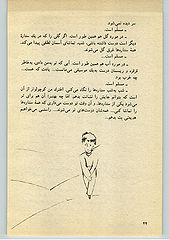 سر دیده نمی‌شود
ـ مسلم است.
ـ در مورد گل هم همین طور است: اگر گلی را که در یک ستارهٔ
دیگر است دوست داشته باشی، شب، تماشای آسمان لطفی پیدا می‌کند.
همهٔ ستاره‌ها غرق گل می‌شوند.
ـ مسلم است...
ـ در مورد آب هم همین طور است: آبی که تو بمن دادی، به‌خاطر
قرقره و ریسمان درست به یک موسیقی می‌مانست... یادت که هست...
چه خوب بود.
ـ مسلم است...
ـ شب به شب ستاره‌ها را نگاه می‌کنی. اخترک من کوچولوتر از آن
است که بتوانم جایش را نشانت بدهم. اما چه بهتر! آن هم برای تو
می‌شود یکی از ستاره‌ها؛ و آن وقت تو دوست داری که همهٔ ستاره‌ها
را تماشا کنی... همه‌شان دوست‌های تو می‌شوند... راستی می‌خواهم
هدیه‌یی بت بدهم...